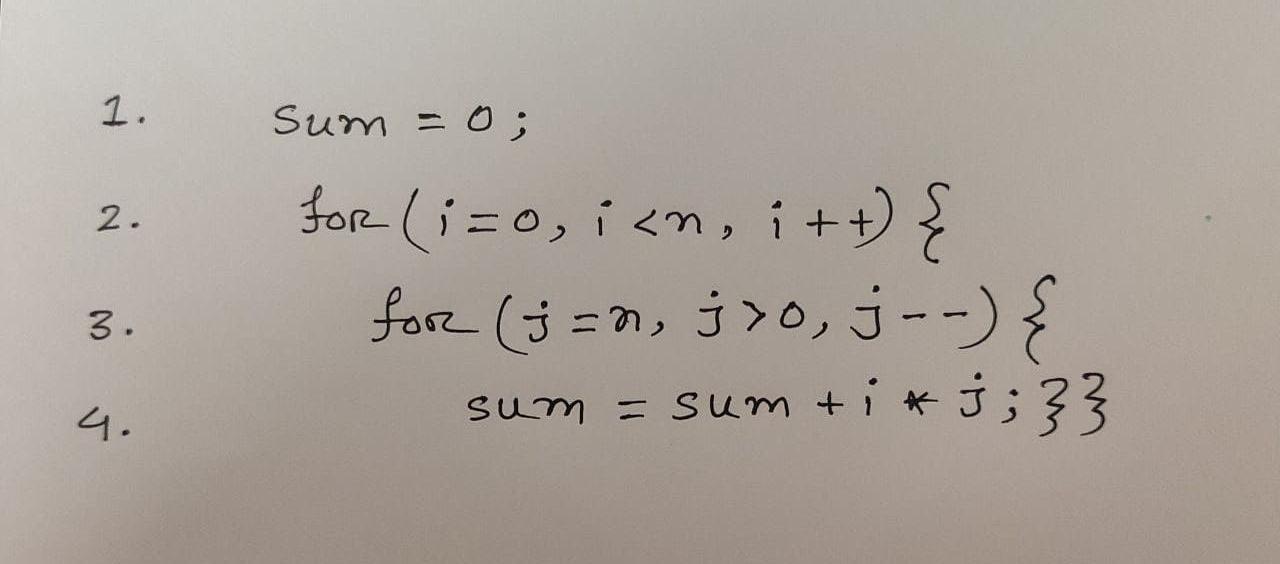 1. sum = 0;
2. for (i=0, i<n, i++) {
3. for (j=n, j>0, j--) {
4. sum = sum + i * j; }}